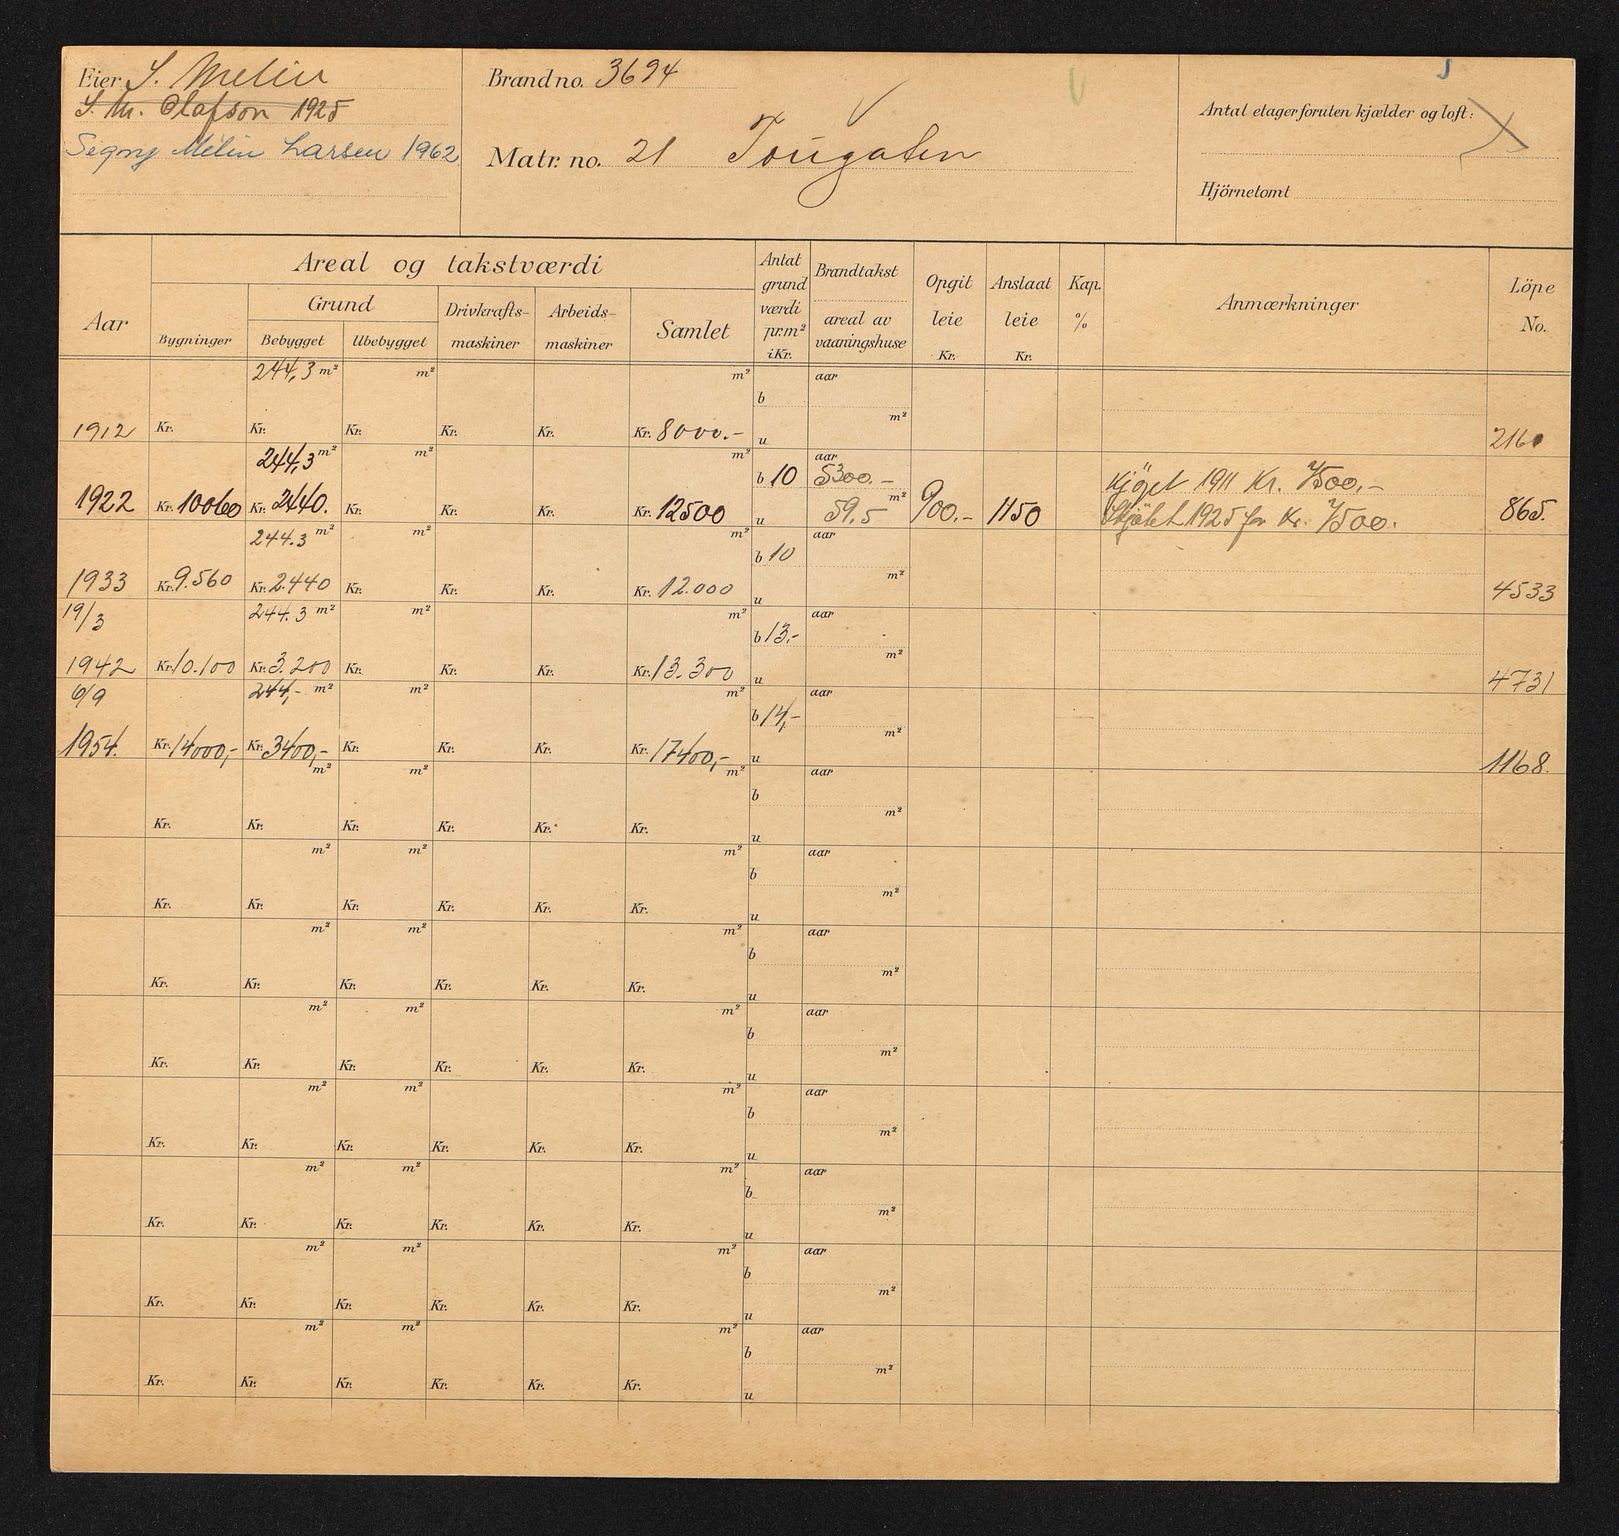 Eier S. Melin
S. M. Olafson 1925
Signy Melin Larsen 1962
Brand no. 3694
Matr. no. 21 Tougaten
Antal etager foruten kjælder og loft:
Hjörnetomt
Aar
Areal og takstværdi
Bygninger
Grund
Bebygget Ubebygget
Drivkrafts-
maskiner
Arbeids-
maskiner
Samlet
Antat
grund
værdi
pr. m²
i Kr.
Brandtakst
areal av
vaaningshuse
Opgit
leie
Kr.
Anslaat
leie
Kr.
Kap.
%
Anmærkninger
Löpe
No.
244,3 m² m² m² aar
b
m²
1912 Kr. Kr. Kr. Kr. Kr. Kr. 8000.- u 2160
244,3 m² m² m² aar
b 10 5300.- Kjöpt 1911 Kr. 7500.-
m²
1922 Kr. 10060 Kr. 2440. Kr. Kr. Kr. Kr. 12500 u 59.5 900.- 1150 Skjötet 1925 for Kr. 7500. 865.
244.3 m² m² m² aar
b 10
m²
1933 Kr. 9.560 Kr. 2.440 Kr. Kr. Kr. Kr. 12.000 u 4533
19/3 244.3 m² m² m² aar
b 13.-
m²
1942 Kr. 10.100 Kr. 3.200 Kr. Kr. Kr. Kr. 13.300 u 4731
6/9 244,- m² m² m² aar
b 14,-
m²
1954. Kr. 14000,- Kr. 3400,- Kr. Kr. Kr. Kr. 17400,- u 1168.
m² m² m² aar
b
m²
Kr. Kr. Kr. Kr. Kr. Kr. u
m² m² m² aar
b
m²
Kr. Kr. Kr. Kr. Kr. Kr. u
m² m² m² aar
b
m²
Kr. Kr. Kr. Kr. Kr. Kr. u
m² m² m² aar
b
m²
Kr. Kr. Kr. Kr. Kr. Kr. u
m² m² m² aar
b
m²
Kr. Kr. Kr. Kr. Kr. Kr. u
m² m² m² aar
b
m²
Kr. Kr. Kr. Kr. Kr. Kr. u
m² m² m² aar
b
m²
Kr. Kr. Kr. Kr. Kr. Kr. u
m² m² m² aar
b
m²
Kr. Kr. Kr. Kr. Kr. Kr. u